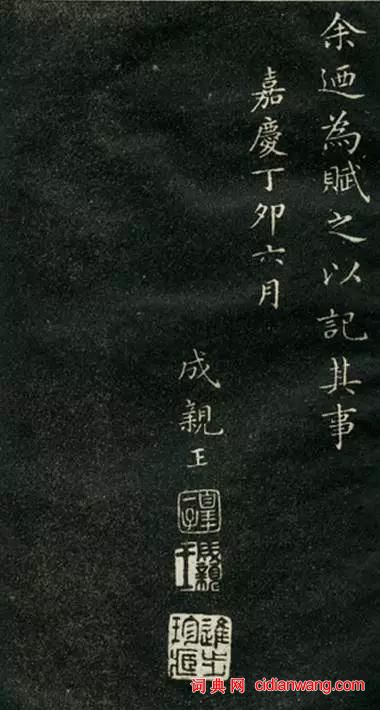 余迺為賦之以記其事
嘉慶丁卯六月
成親王
成親王
词典网 cidianwang.com